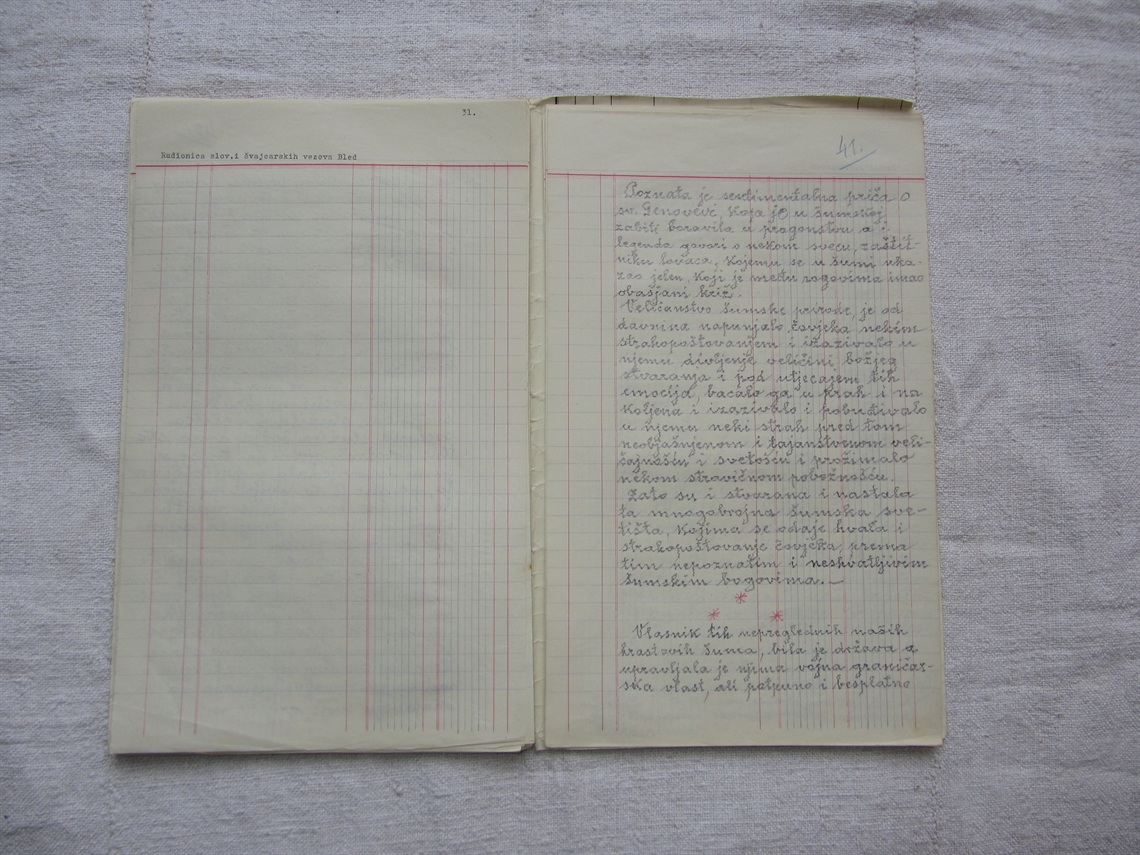 31.
Radionica slov.i švajcarskih vezova Bled
41.
Poznata je sentimentalna priča o
sv. Genovevi, koja je u šumskoj
zabiti boravila u progonstvu a i
legenda govori o nekom svecu, zaštit-
niku lovaca, kojemu se u šumi uka-
zao jelen, koji je među rogovima imao
obasjani križ.
Veličanstvo šumske prirode, je od
davnina napunjalo čovjeka nekim
strahopoštovanjem i izazivalo u
njemu divljenje veličini božjeg
stvaranja i pod utjecajem tih
emocija, bacalo ga u prah i na
koljena i izazivalo i pobuđivalo
u njemu neki strah pred tom
neobjašnjenom i tajanstvenom veli-
čajnošću i svetošću i prožimalo
nekom stravičnom pobožnošću.
Zato su i stvarana i nastala
ta mnogobrojna šumska sve-
tišta, kojima se odaje hvala i
strahopoštovanje čovjeka, prema
tim nepoznatim i neshvatljivim
šumskim bogovima. —
Vlasnik tih nepreglednih naših
hrastovih šuma, bila je država a
upravljala je njima vojna graničar-
ska vlast, ali potpuno i besplatno